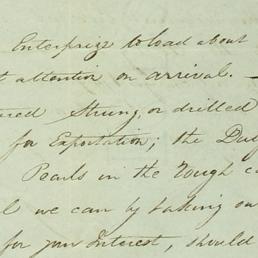 Enterprize to load about
attention on arrival. —
Strung, or drilled
for Exportation; the Du
Pearls in the rough c
we can by taking ou
for your Interest, should